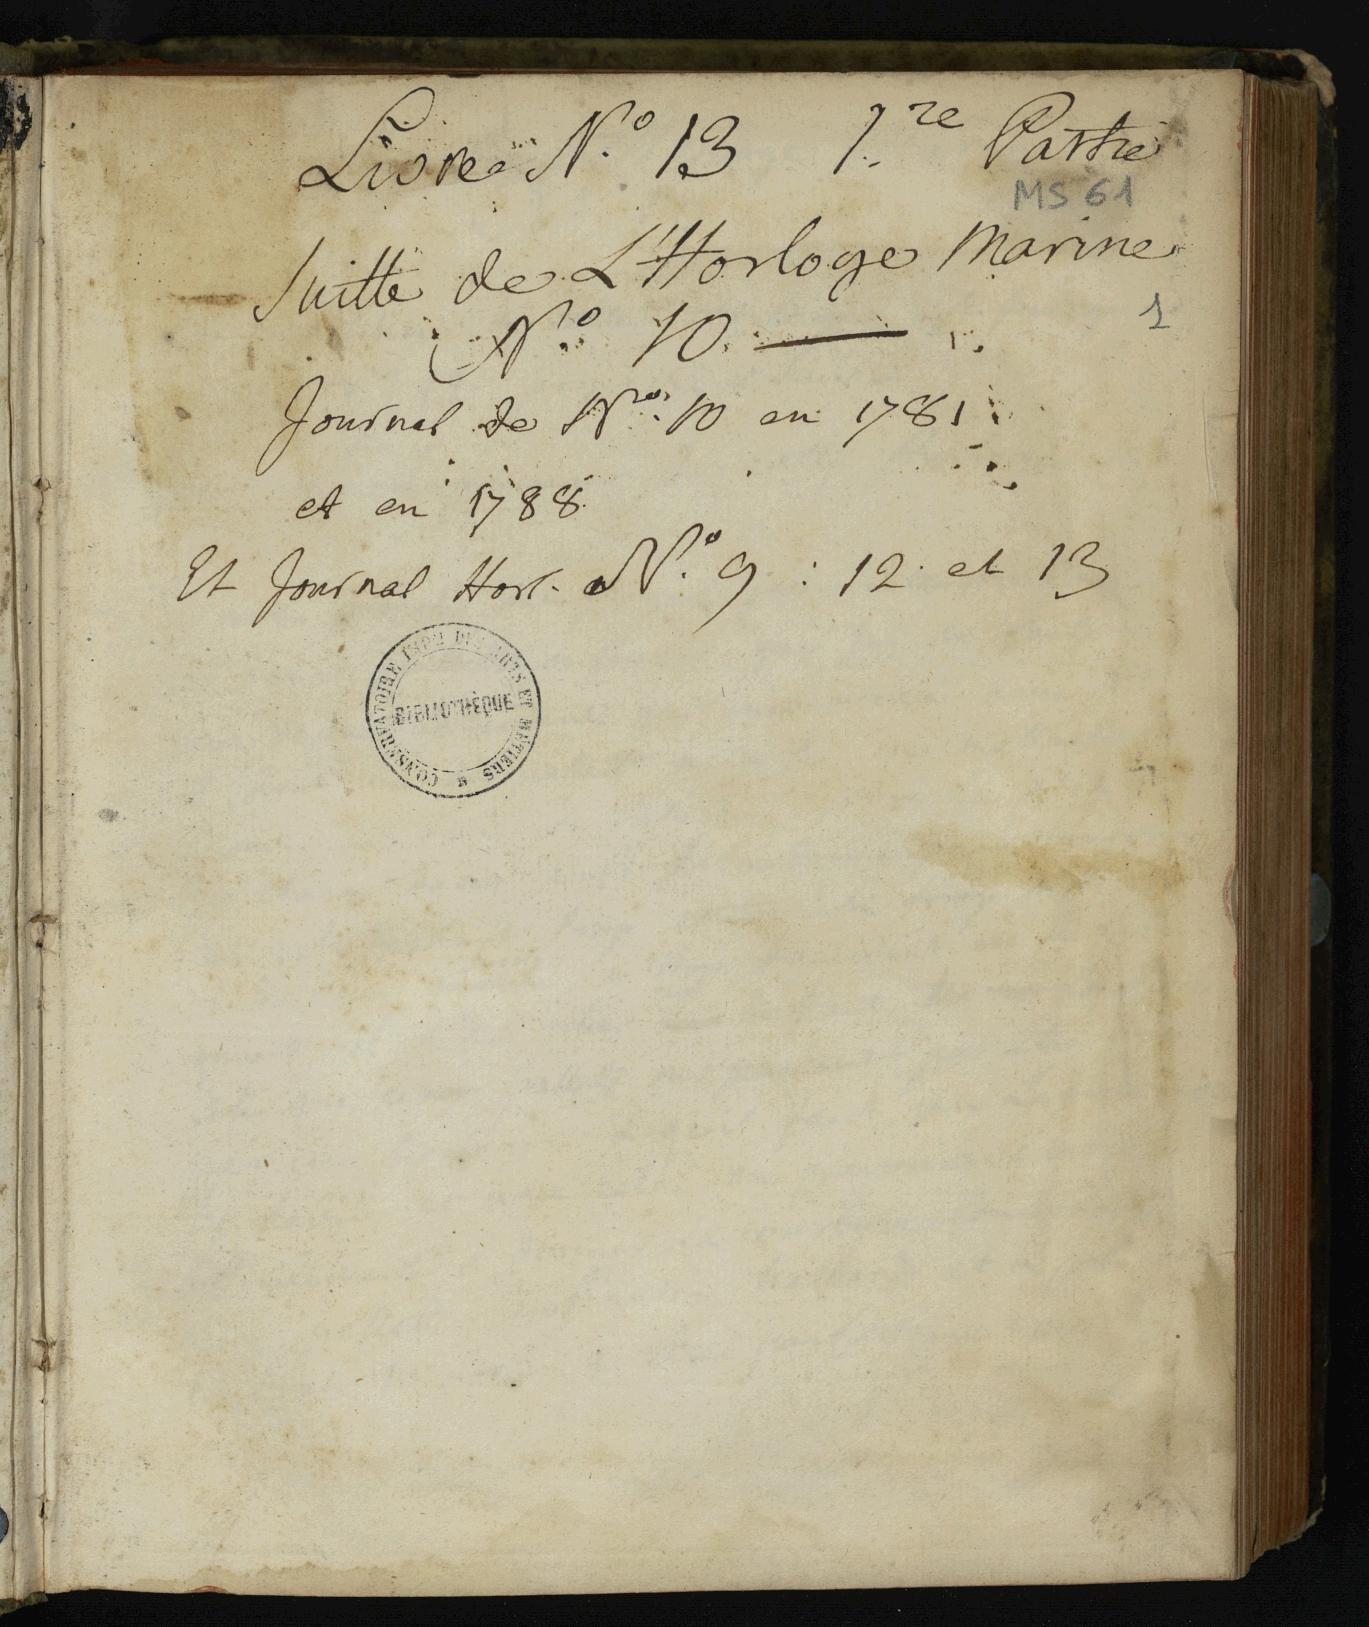 Livre N.º 13 1.re Partie
MS 61
Suitte de L'Horloge Marine
1
N.º 10.
Journal de N.º 10 en 1781
et en 1788
Et Journal Horl. N.º 9 : 12 et 13
CONSERVATOIRE IMP.AL DES ARTS ET METIERS
BIBLIOTHÈQUE